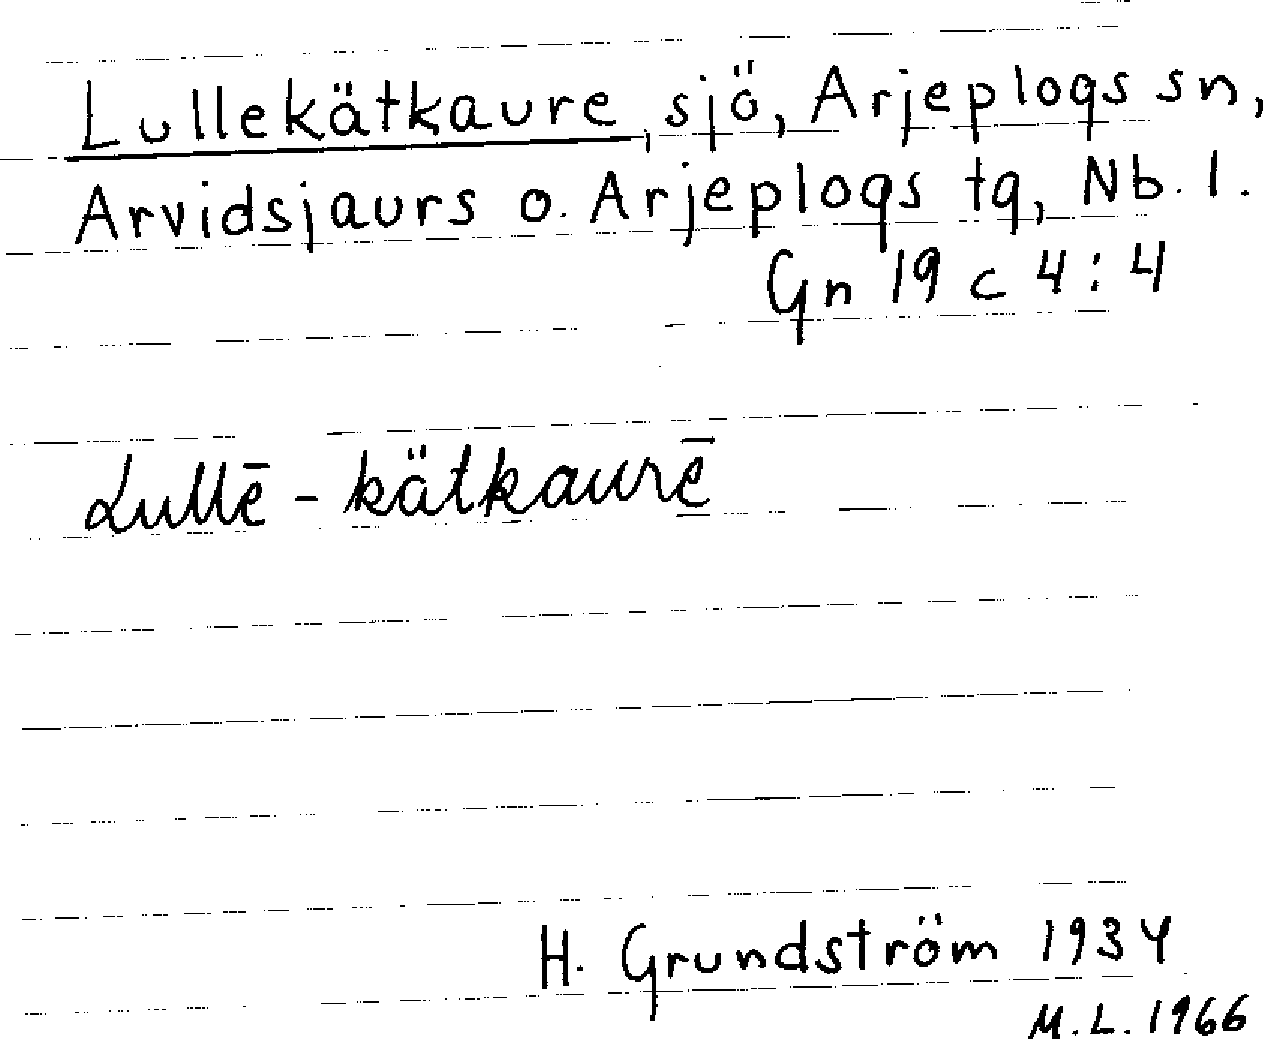 Lullekätkaure, sjö, Arjeplogs sn,
Arvidsjaurs o. Arjeplogs tg, Nb. l.
Gn 19 c 4:4
Lullē - kätkaurē
H. Grundström 1934
M.L. 1966